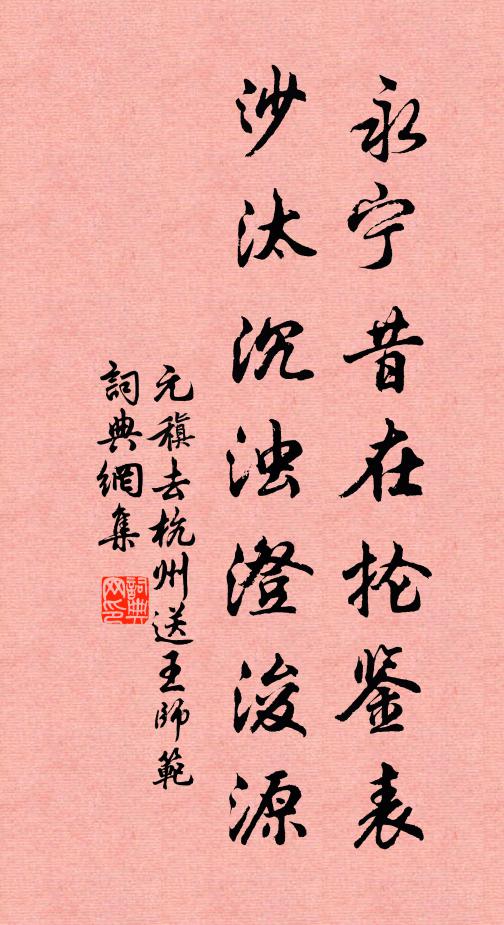 永宁昔在抡鉴表
沙汰沉浊澄浚源
元稹去杭州送王師範
詞典網集
詞典网印